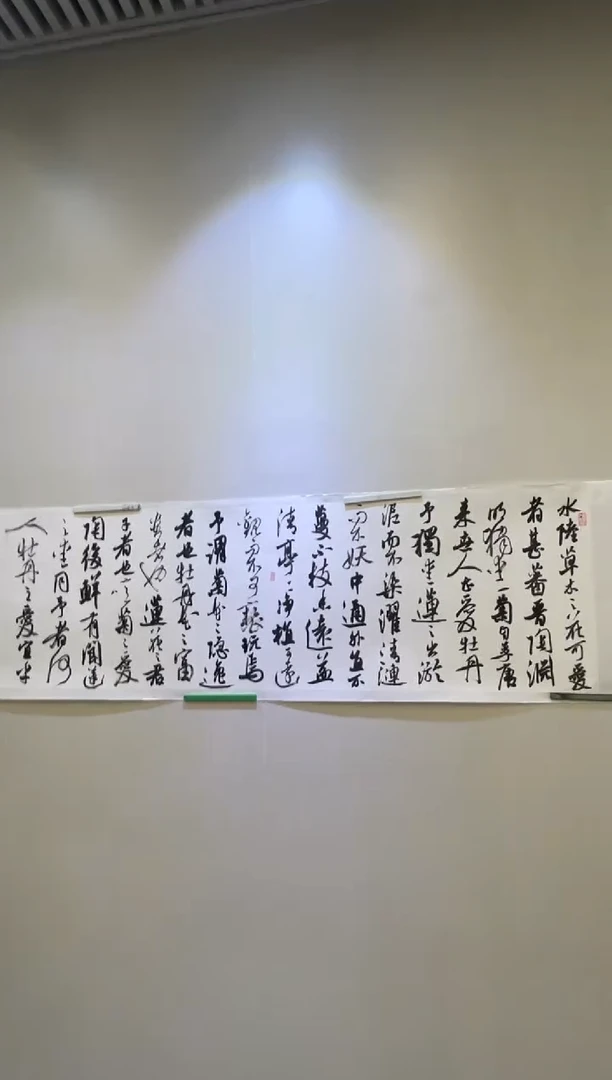 水陸草木之花可愛
者甚蕃晋陶淵
明獨愛菊自李唐
来世人甚愛牡丹
予獨愛蓮之出淤
泥而不染濯清漣
而不妖中通外直不
蔓不枝香遠益
清亭亭净植可遠
觀而不可褻玩焉
予謂菊花之隐逸
者也牡丹花之富
貴者也蓮花君
子者也噫菊之愛
陶後鮮有聞蓮
之愛同予者何
人牡丹之愛宜乎